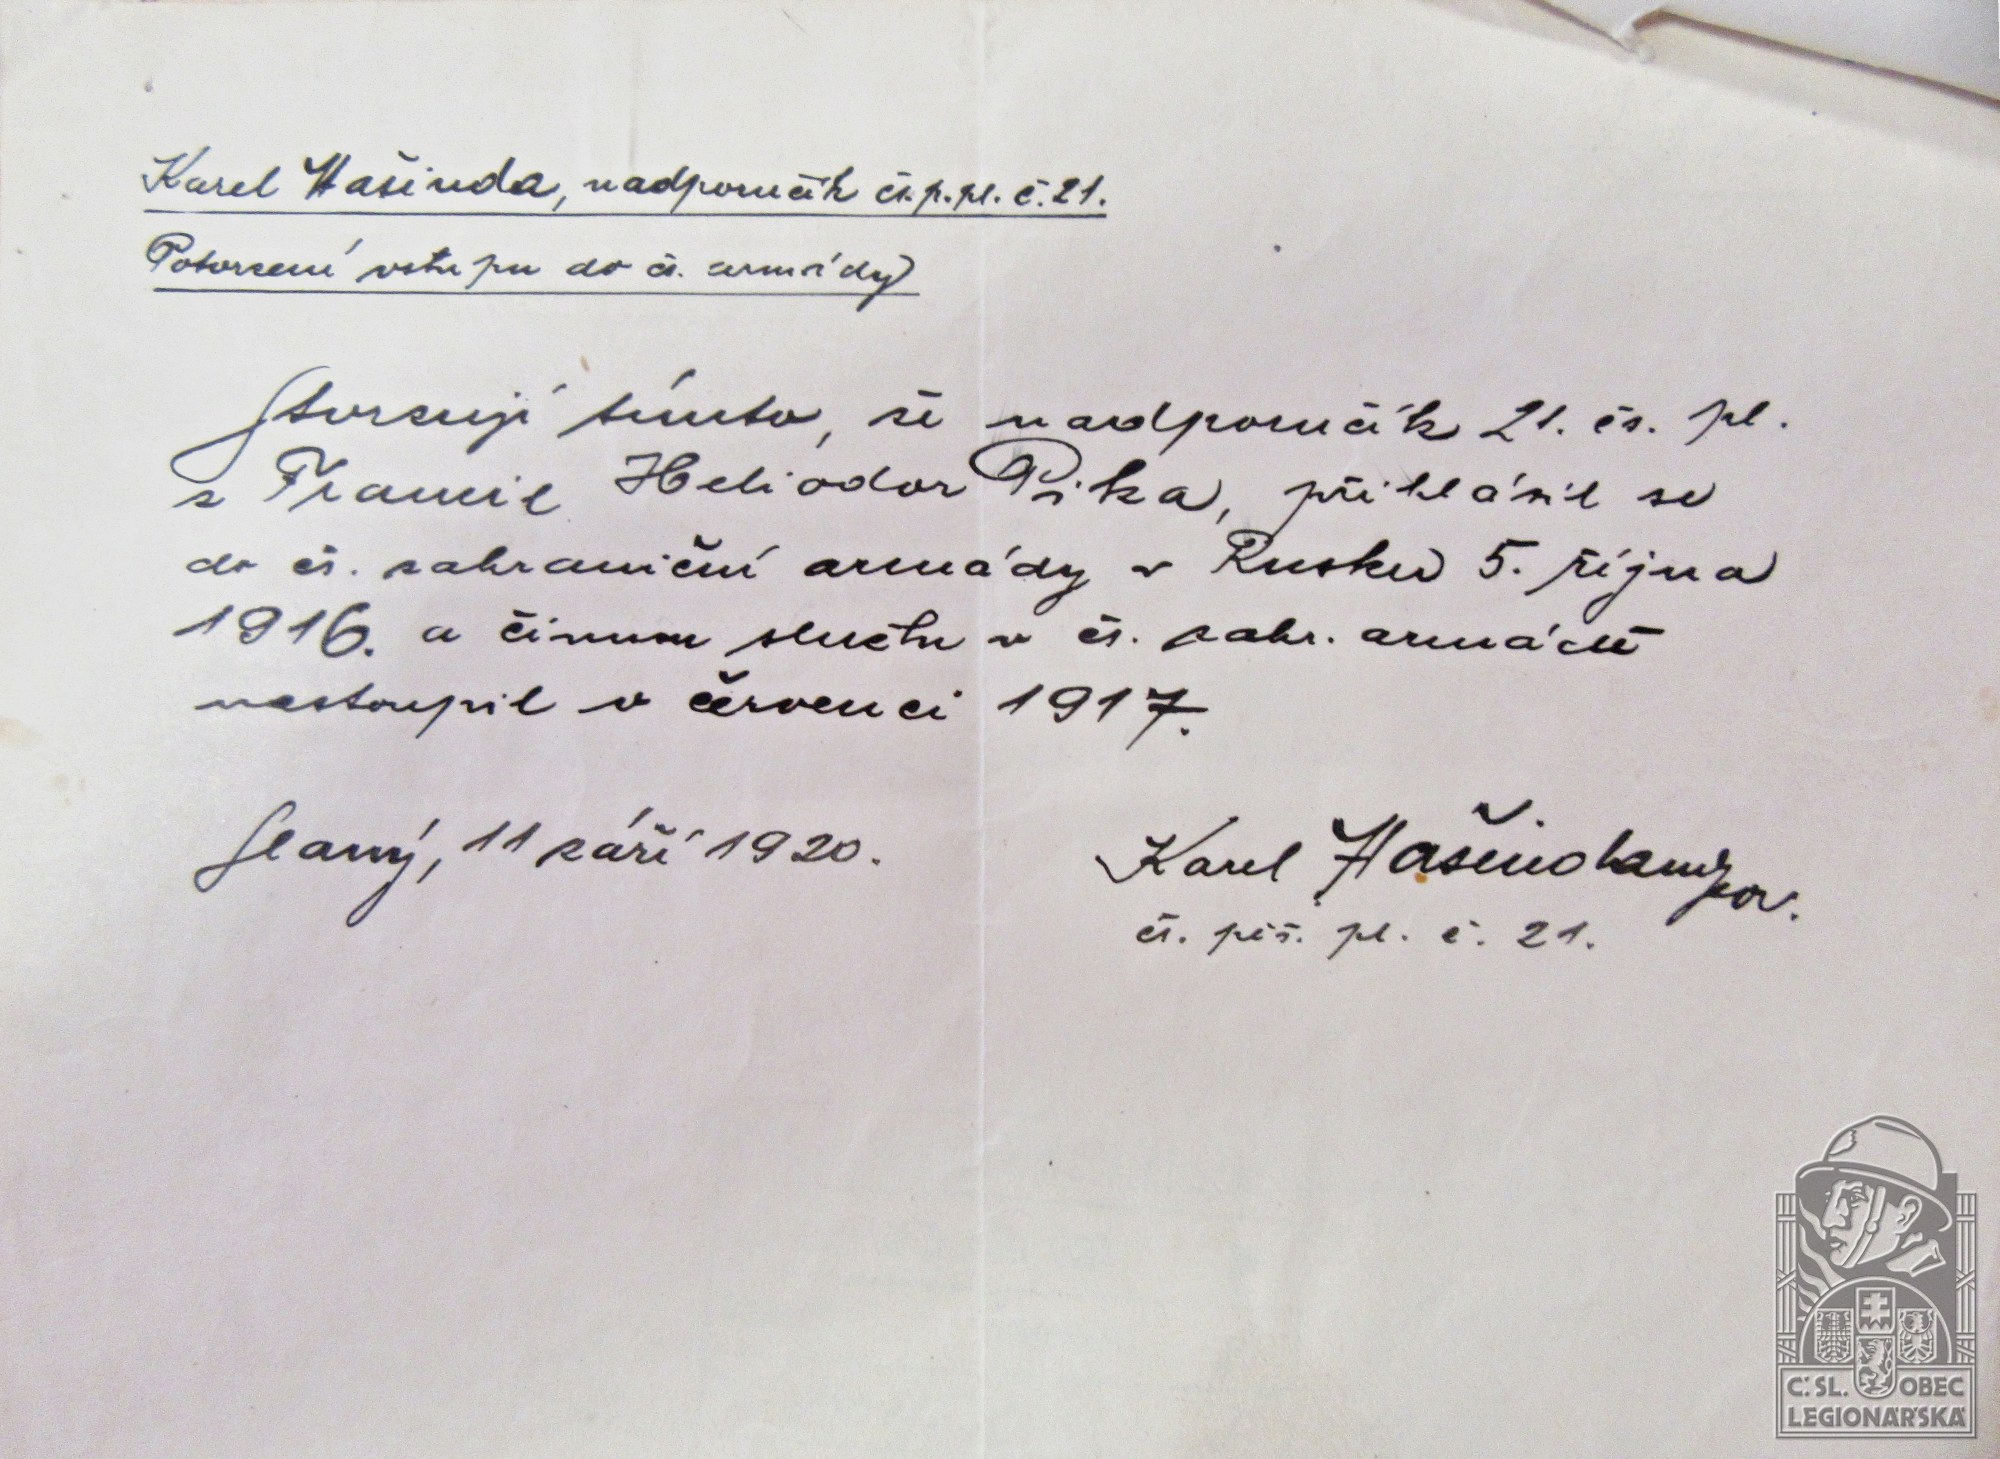 Karel Hašinda, nadporučík čs.p.pl. č.21.
Potvrzení vstupu do čs. armády
Stvrzuji tímto, že nadporučík 21. čs. pl.
z Francie Heliodor Pika, přihlásil se
do čs. zahraniční armády v Rusku 5. října
1916. a činnou službu v čs. zahr. armádě
nastoupil v červenci 1917.
Slaný, 11 září 1920.
Karel Hašinda
čs. pěš. pl. č. 21.
Č.SL. OBEC
LEGIONÁŘSKÁ